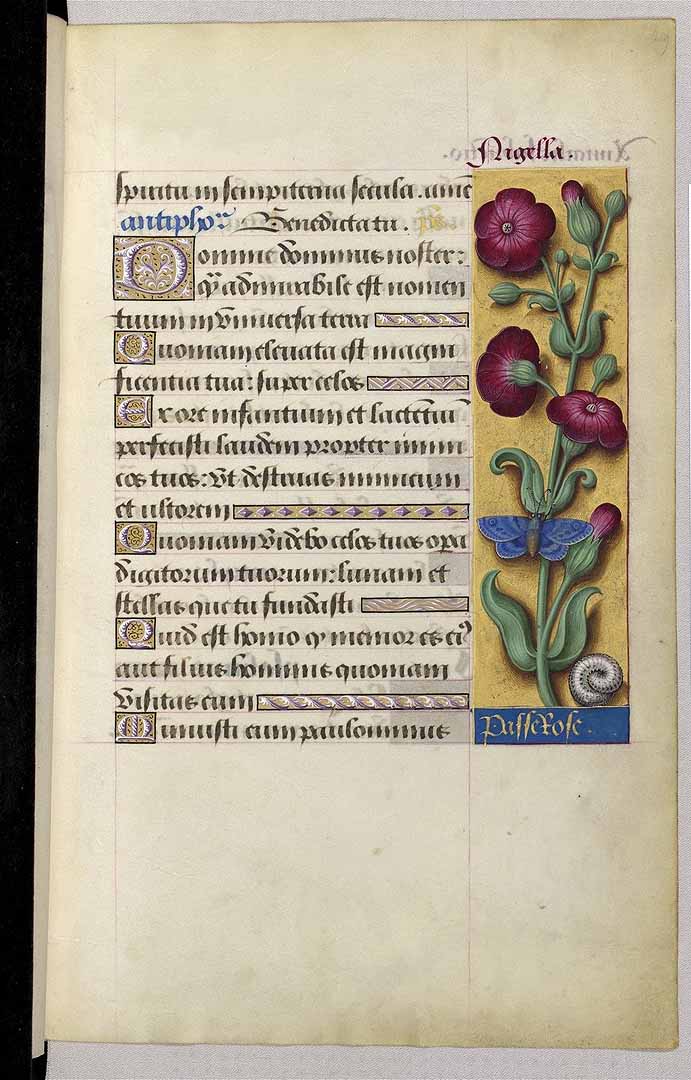 Nigella.
spiritu in sempiterna secula. amē
antipho. Benedicta tu. ps.
Domine dominus noster:
q̄ admirabile est nomen
tuum in vniuersa terra
Quoniam eleuata est magni
ficentia tua: super celos
Ex ore infantium et lactētiū
perfecisti laudem propter inimi
cos tuos: vt destruas inimicum
et vltorem
Quoniam videbo celos tuos opera
digitorum tuorum: lunam et
stellas que tu fundasti
Quid est homo q̄ memor es ei9
aut filius hominis quoniam
visitas eum
Minuisti eum paulominus
Passerose.